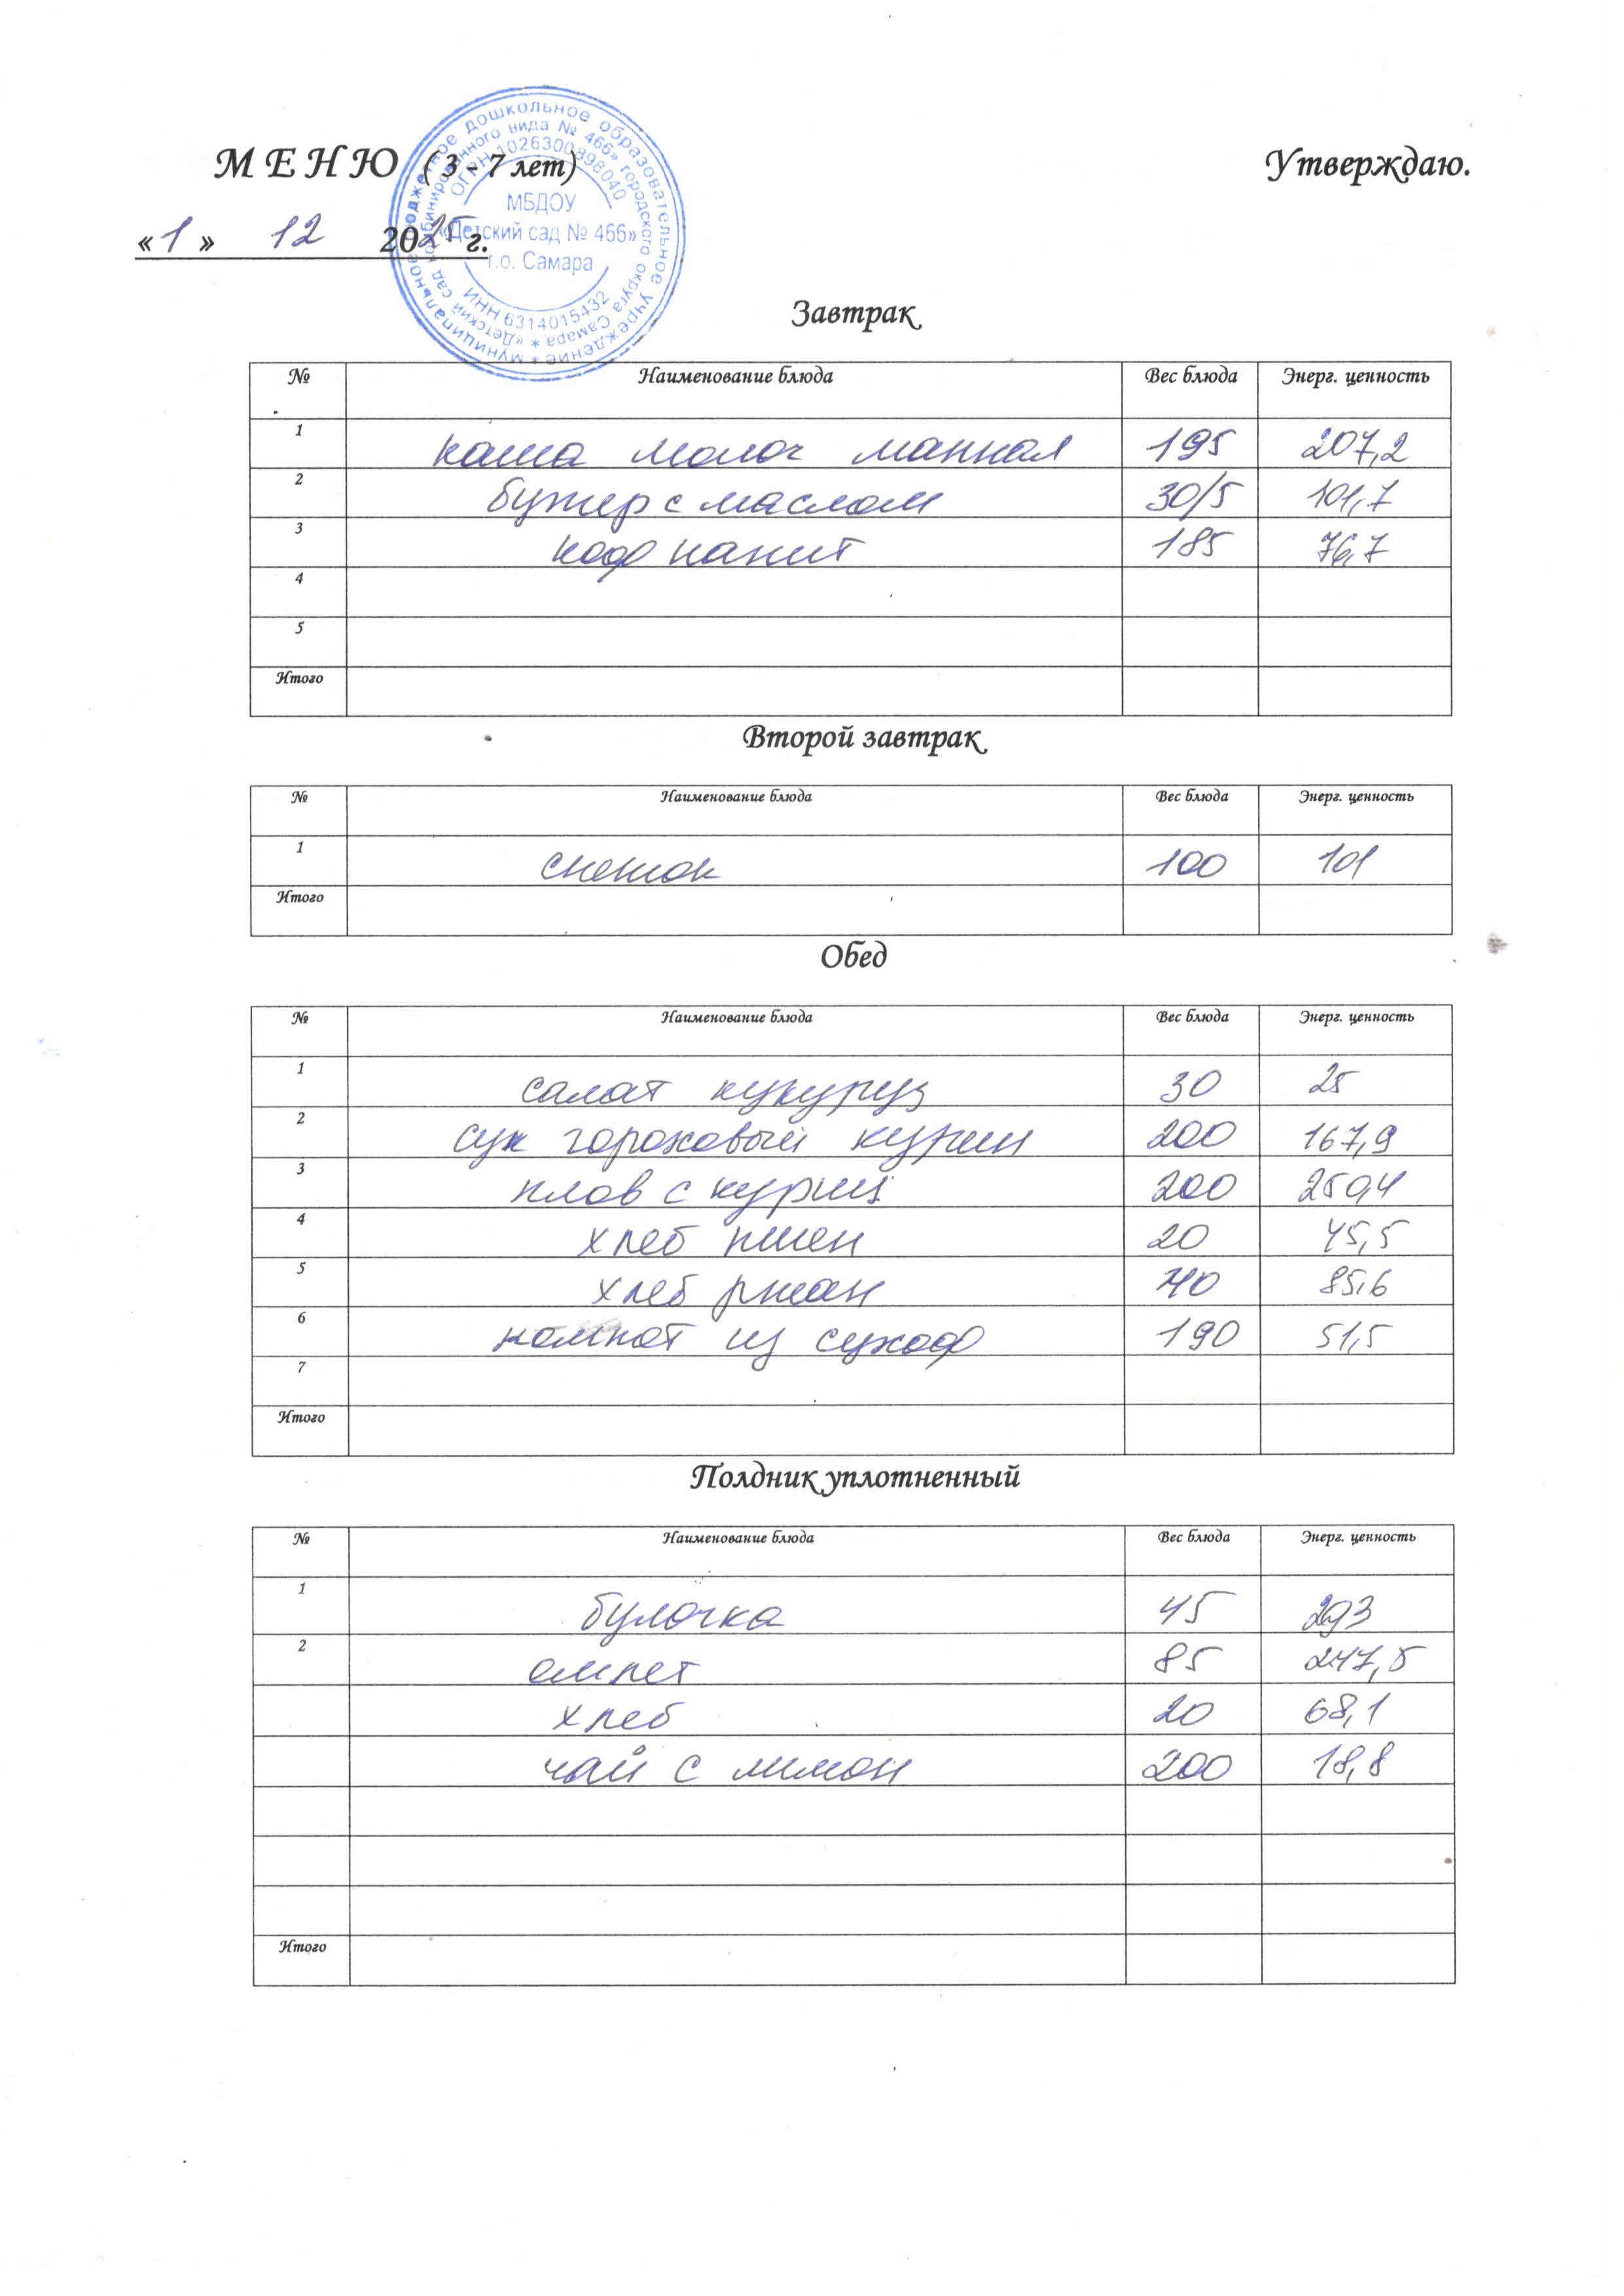 М Е Н Ю ( 3 - 7 лет) Утверждаю.
« 1 » 12 2025 г.
муниципальное бюджетное дошкольное образовательное учреждение *
«Детский сад комбинированного вида № 466» городского округа Самара *
ОГРН 1026300898040
МБДОУ
«Детский сад № 466»
г.о. Самара
ИНН 6314015432
Завтрак
№ Наименование блюда Вес блюда Энерг. ценность
1 каша молоч манная 195 207,2
2 бутер с маслом 30/5 101,7
3 коф напит 185 76,7
4
5
Итого
Второй завтрак
№ Наименование блюда Вес блюда Энерг. ценность
1 снежок 100 101
Итого
Обед
№ Наименование блюда Вес блюда Энерг. ценность
1 салат кукуруз 30 25
2 суп гороховый курин 200 167,9
3 плов с куриц 200 250,4
4 хлеб пшен 20 45,5
5 хлеб ржан 40 85,6
6 компот из сухоф 190 51,5
7
Итого
Полдник уплотненный
№ Наименование блюда Вес блюда Энерг. ценность
1 булочка 45 293
2 омлет 85 247,5
хлеб 20 68,1
чай с лимон 200 18,8
Итого